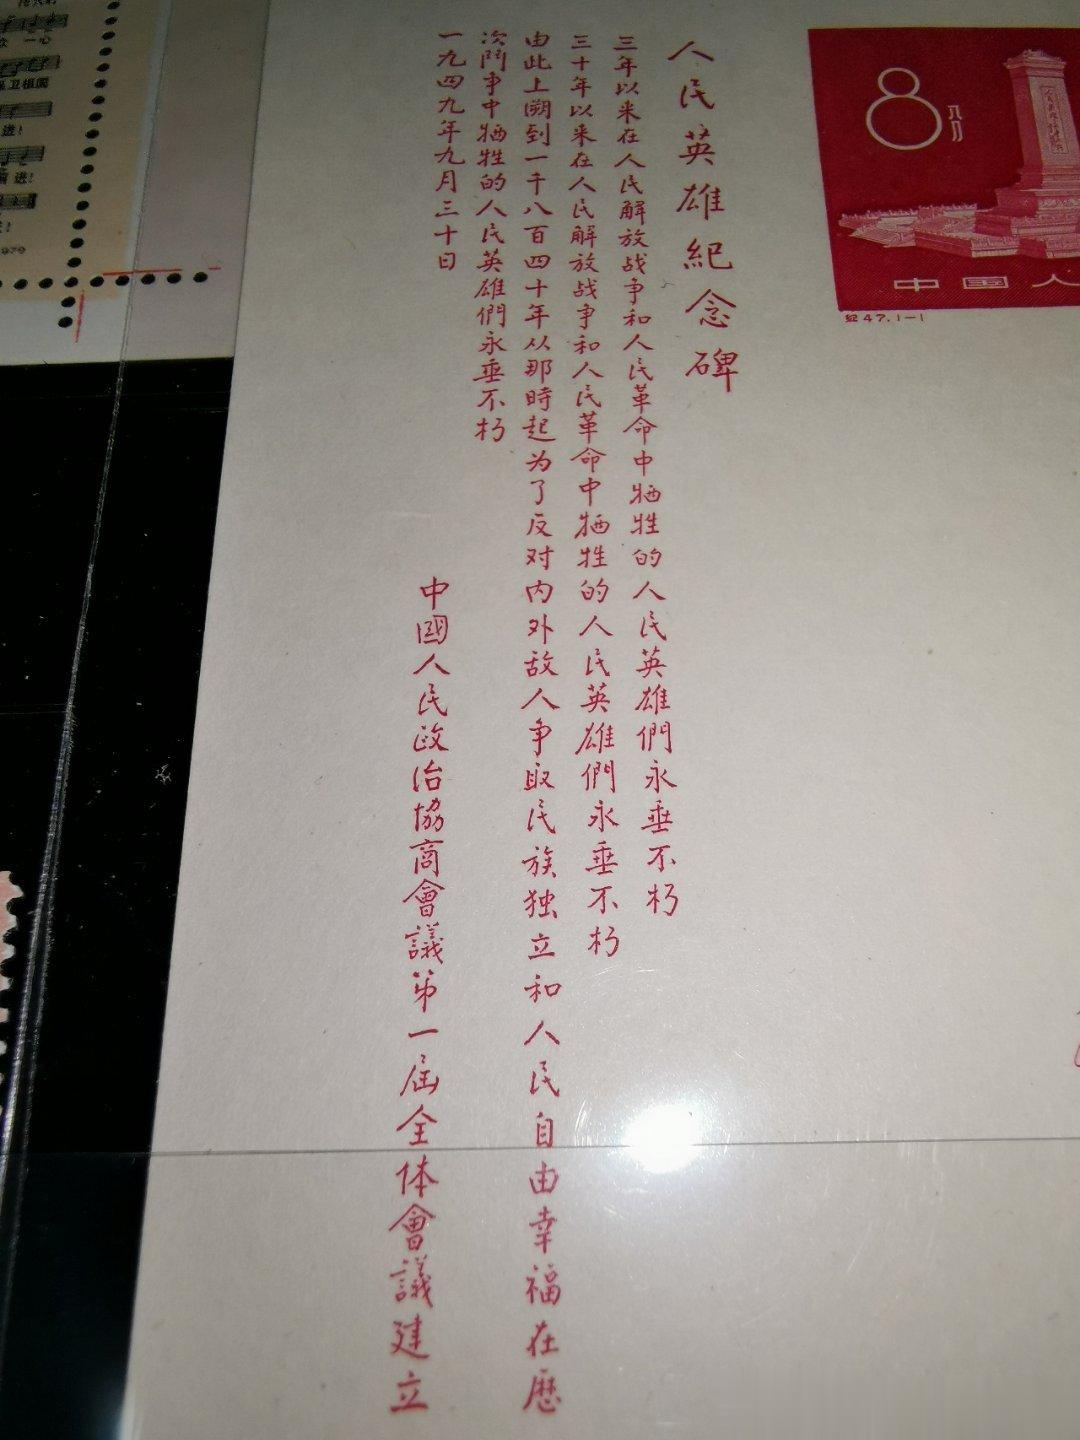 人民英雄紀念碑
三年以来在人民解放战争和人民革命中牺牲的人民英雄們永垂不朽
三十年以来在人民解放战争和人民革命中牺牲的人民英雄們永垂不朽
由此上溯到一千八百四十年从那時起为了反对内外敌人争取民族独立和人民自由幸福在歷
次鬥争中牺牲的人民英雄們永垂不朽
一九四九年九月三十日
中國人民政治協商會議第一届全体會議建立
8
八分
中国人
紀47.1-1
一心
卫祖国
进!
进!
1979